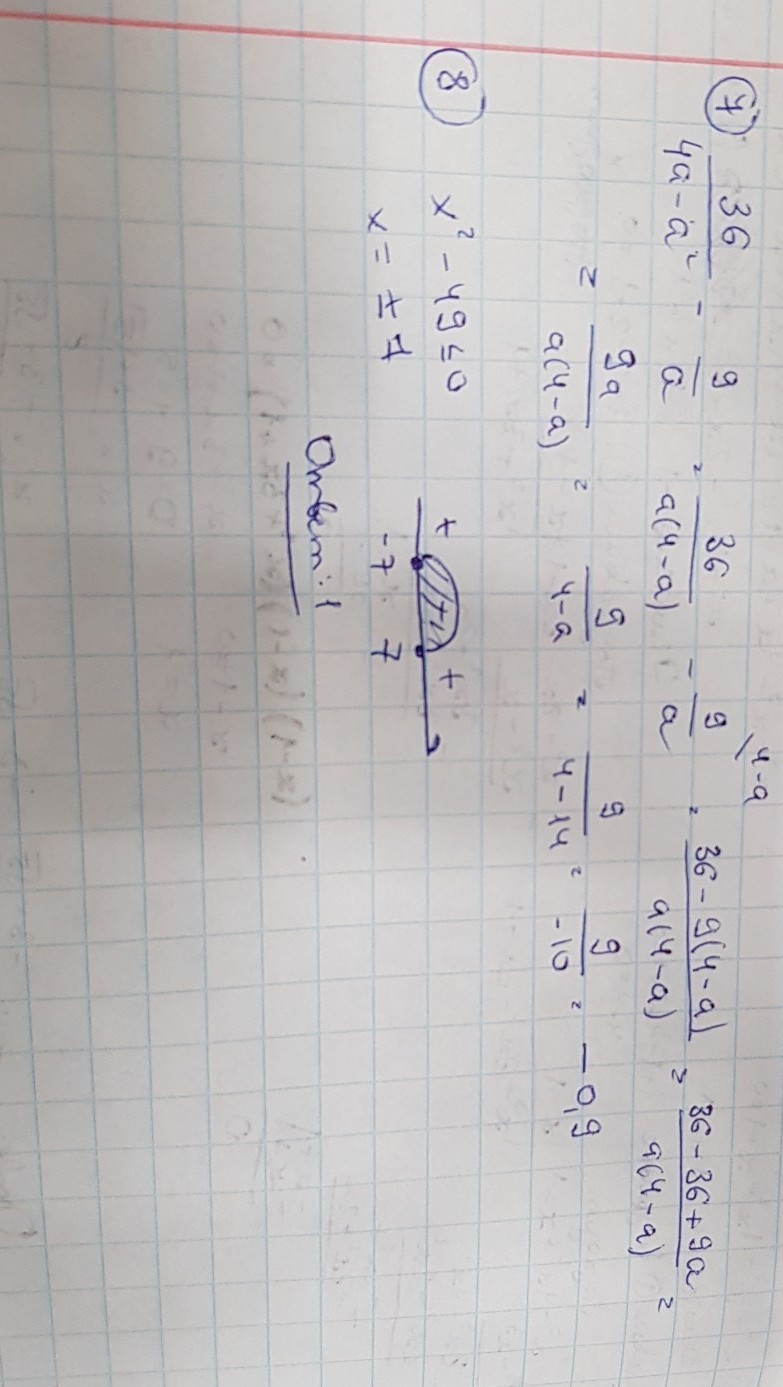 7) 36/(4a - a²) - 9/a = 36/(a(4-a)) - 9/a \4-a = (36 - 9(4-a))/(a(4-a)) = (36 - 36 + 9a)/(a(4-a)) =
= 9a/(a(4-a)) = 9/(4-a) = 9/(4-14) = 9/-10 = -0,9
8) x² - 49 ≤ 0
x = ±7
+ +
-7 7
Ответ: 1